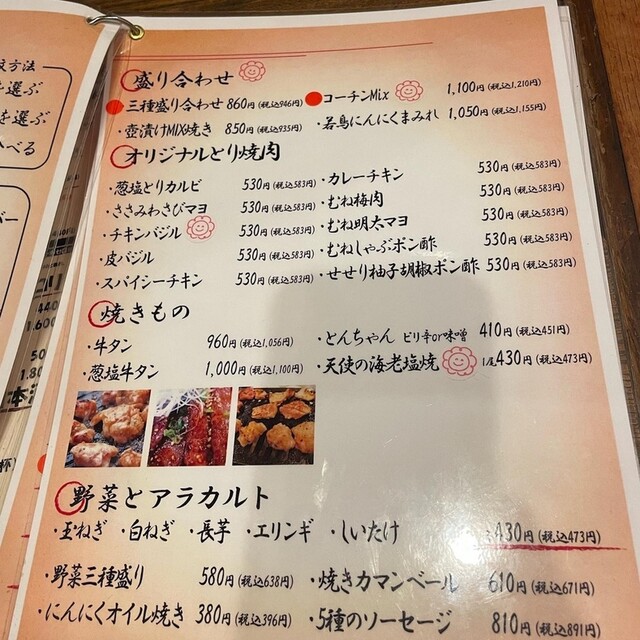 盛り合わせ
三種盛り合わせ 860円(税込946円)
・壺漬けMIX焼き 850円(税込935円)
コーチンMix 1,100円(税込1,210円)
・若鳥にんにくまみれ 1,050円(税込1,155円)
オリジナルとり焼肉
・葱塩とりカルビ 530円(税込583円)
・ささみわさびマヨ 530円(税込583円)
・チキンバジル 530円(税込583円)
・皮バジル 530円(税込583円)
・スパイシーチキン 530円(税込583円)
・カレーチキン 530円(税込583円)
・むね梅肉 530円(税込583円)
・むね明太マヨ 530円(税込583円)
・むねしゃぶポン酢 530円(税込583円)
・せせり柚子胡椒ポン酢 530円(税込583円)
焼きもの
・牛タン 960円(税込1,056円)
・葱塩牛タン 1,000円(税込1,100円)
・とんちゃん ピリ辛or味噌 410円(税込451円)
・天使の海老塩焼 1尾430円(税込473円)
野菜とアラカルト
・玉ねぎ ・白ねぎ ・長芋 ・エリンギ ・しいたけ 430円(税込473円)
・野菜三種盛り 580円(税込638円)
・にんにくオイル焼き 380円(税込396円)
・焼きカマンベール 610円(税込671円)
・5種のソーセージ 810円(税込891円)
方法
を選ぶ
を選ぶ
べる
バー
440
1,600
50
1,80
杯)